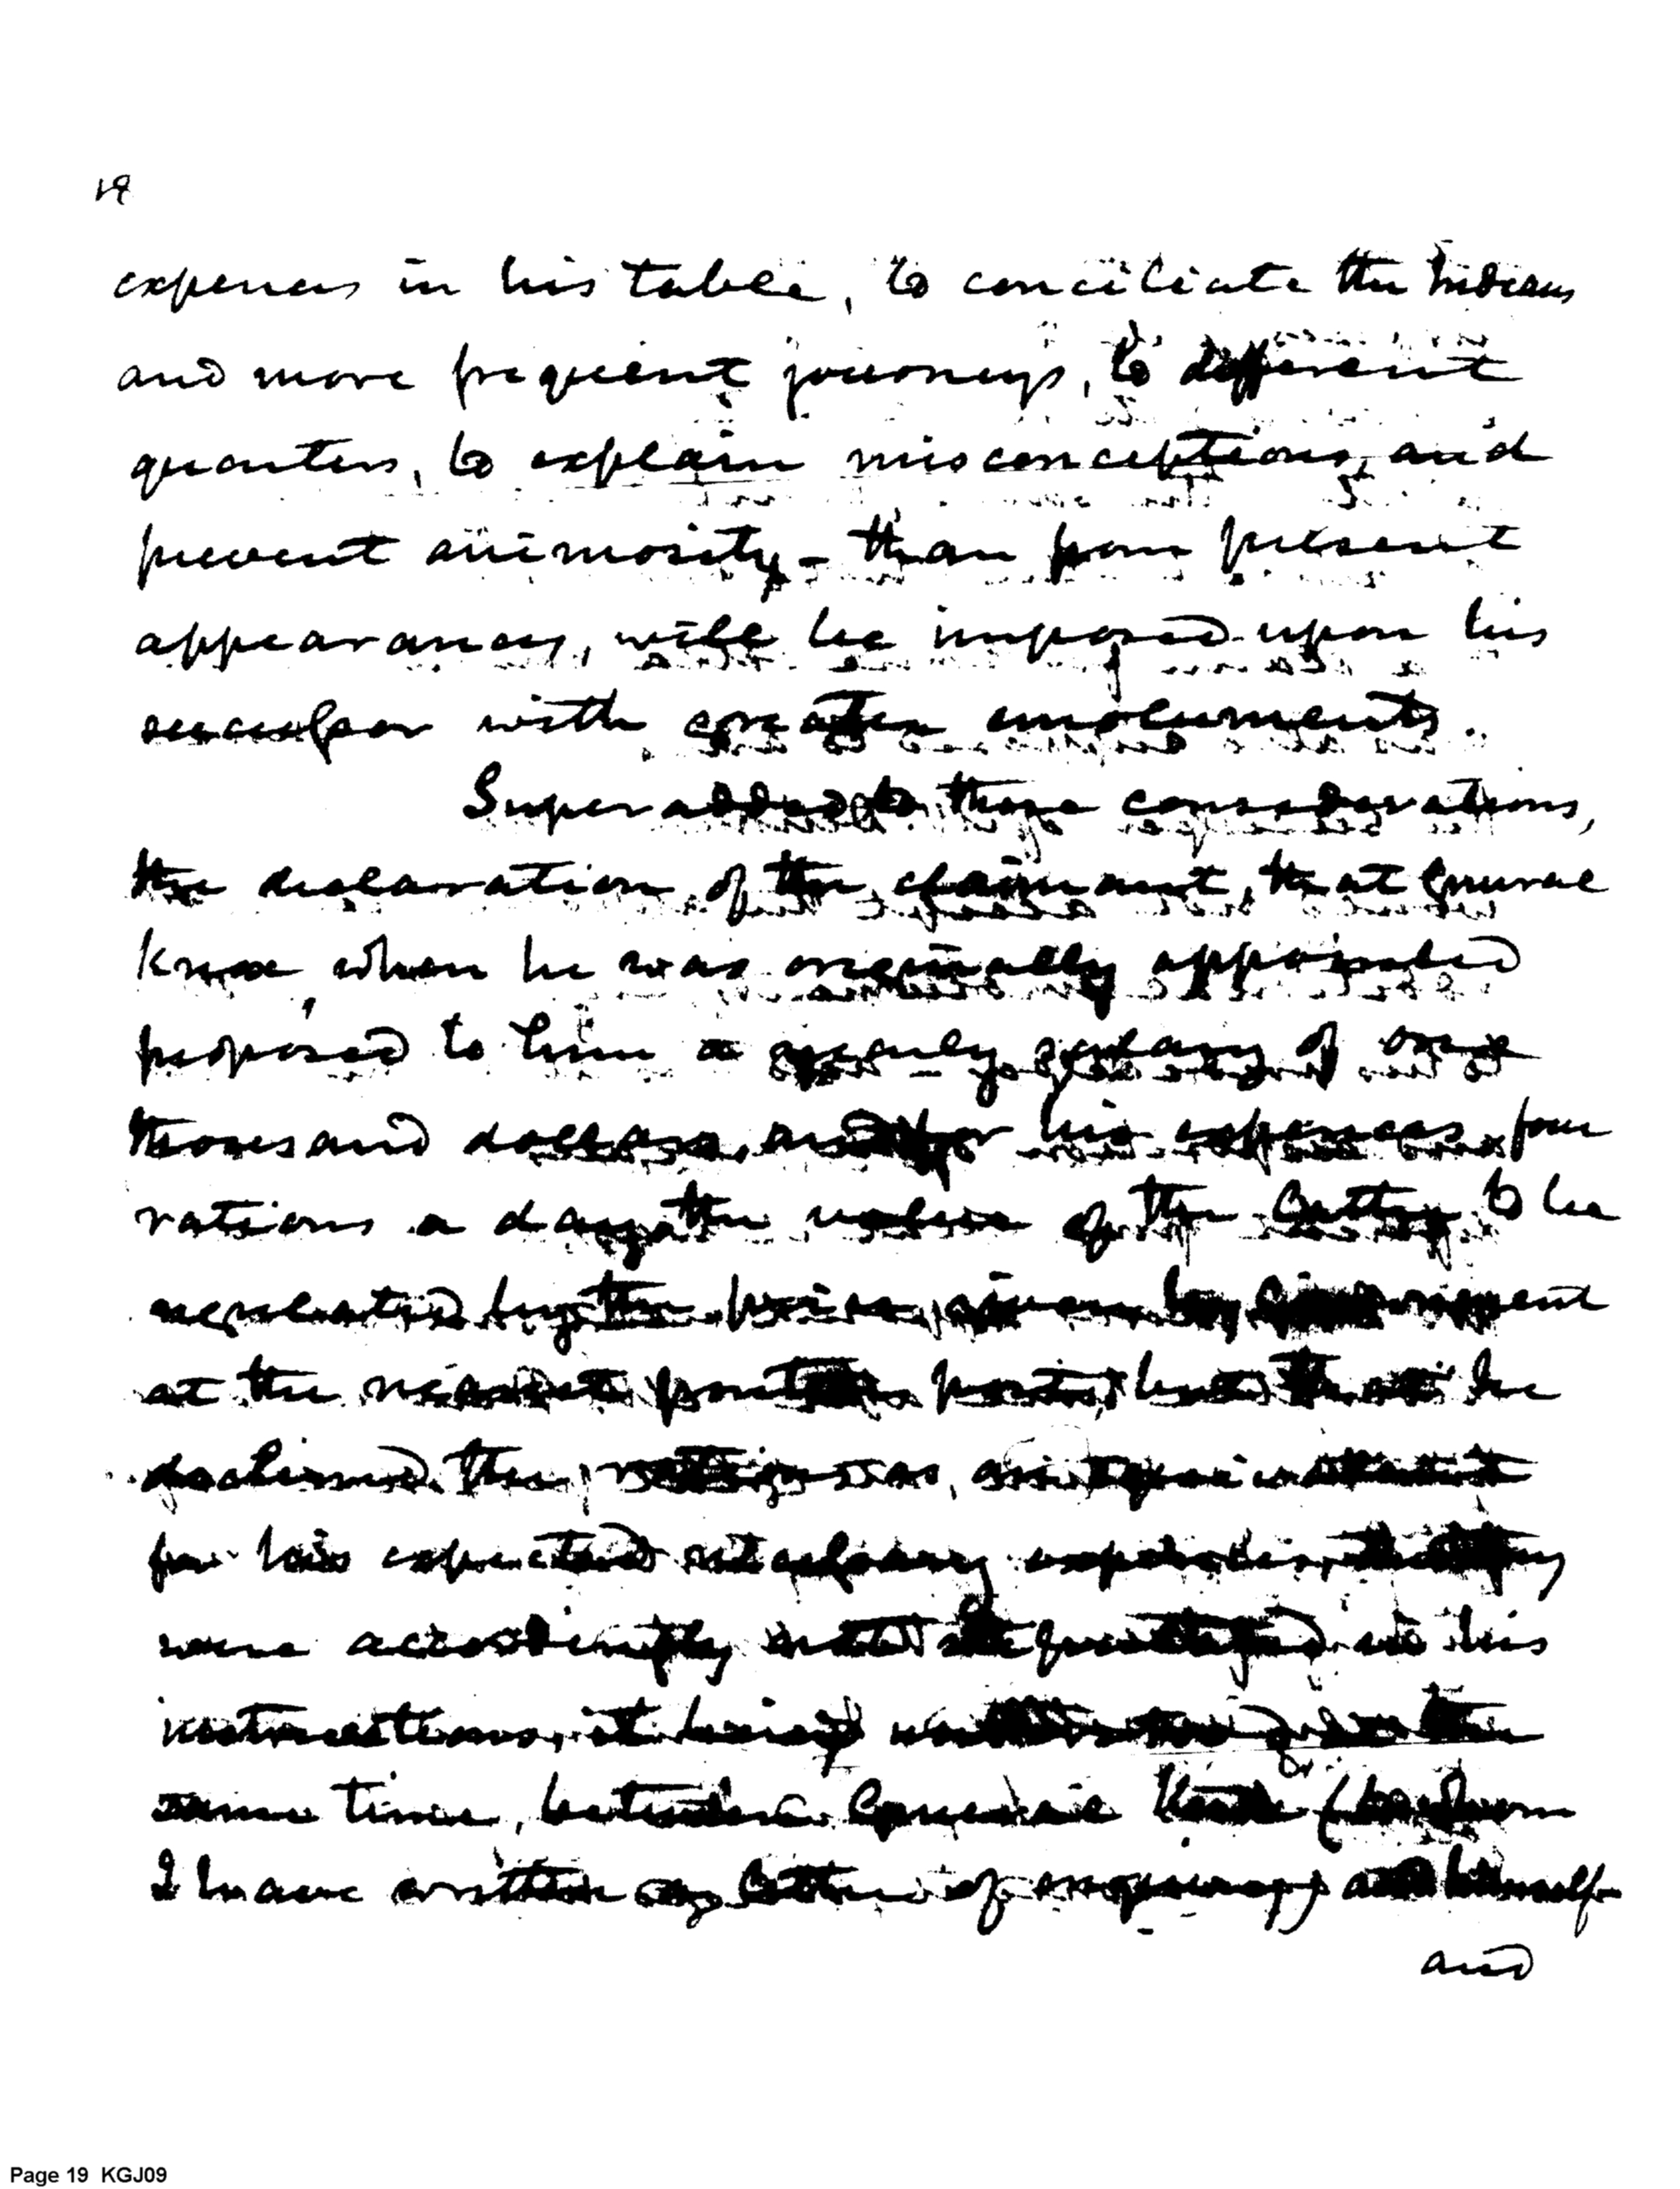 19
expences in his table, to conciliate the Indians
and more frequent journeys, to different
quarters, to explain misconceptions, and
prevent animosity - than from present
appearances, will be imposed upon his
successor with greater emoluments.
Superadded to these considerations,
the declaration of the claimant, that General
Knox, when he was originally appointed
proposed to him a yearly salary of one
thousand dollars, and for his expences four
rations a day, the value of the latter to be
regulated by the price given by government
at the nearest post or posts, but that he
declined the rations as, an equivalent
for his expected necessary expences, that they
were accordingly not in his
instructions, it being understood, at the
same time, between General Knox (to whom
I have written a letter of enquiry) and himself
and
Page 19 KGJ09